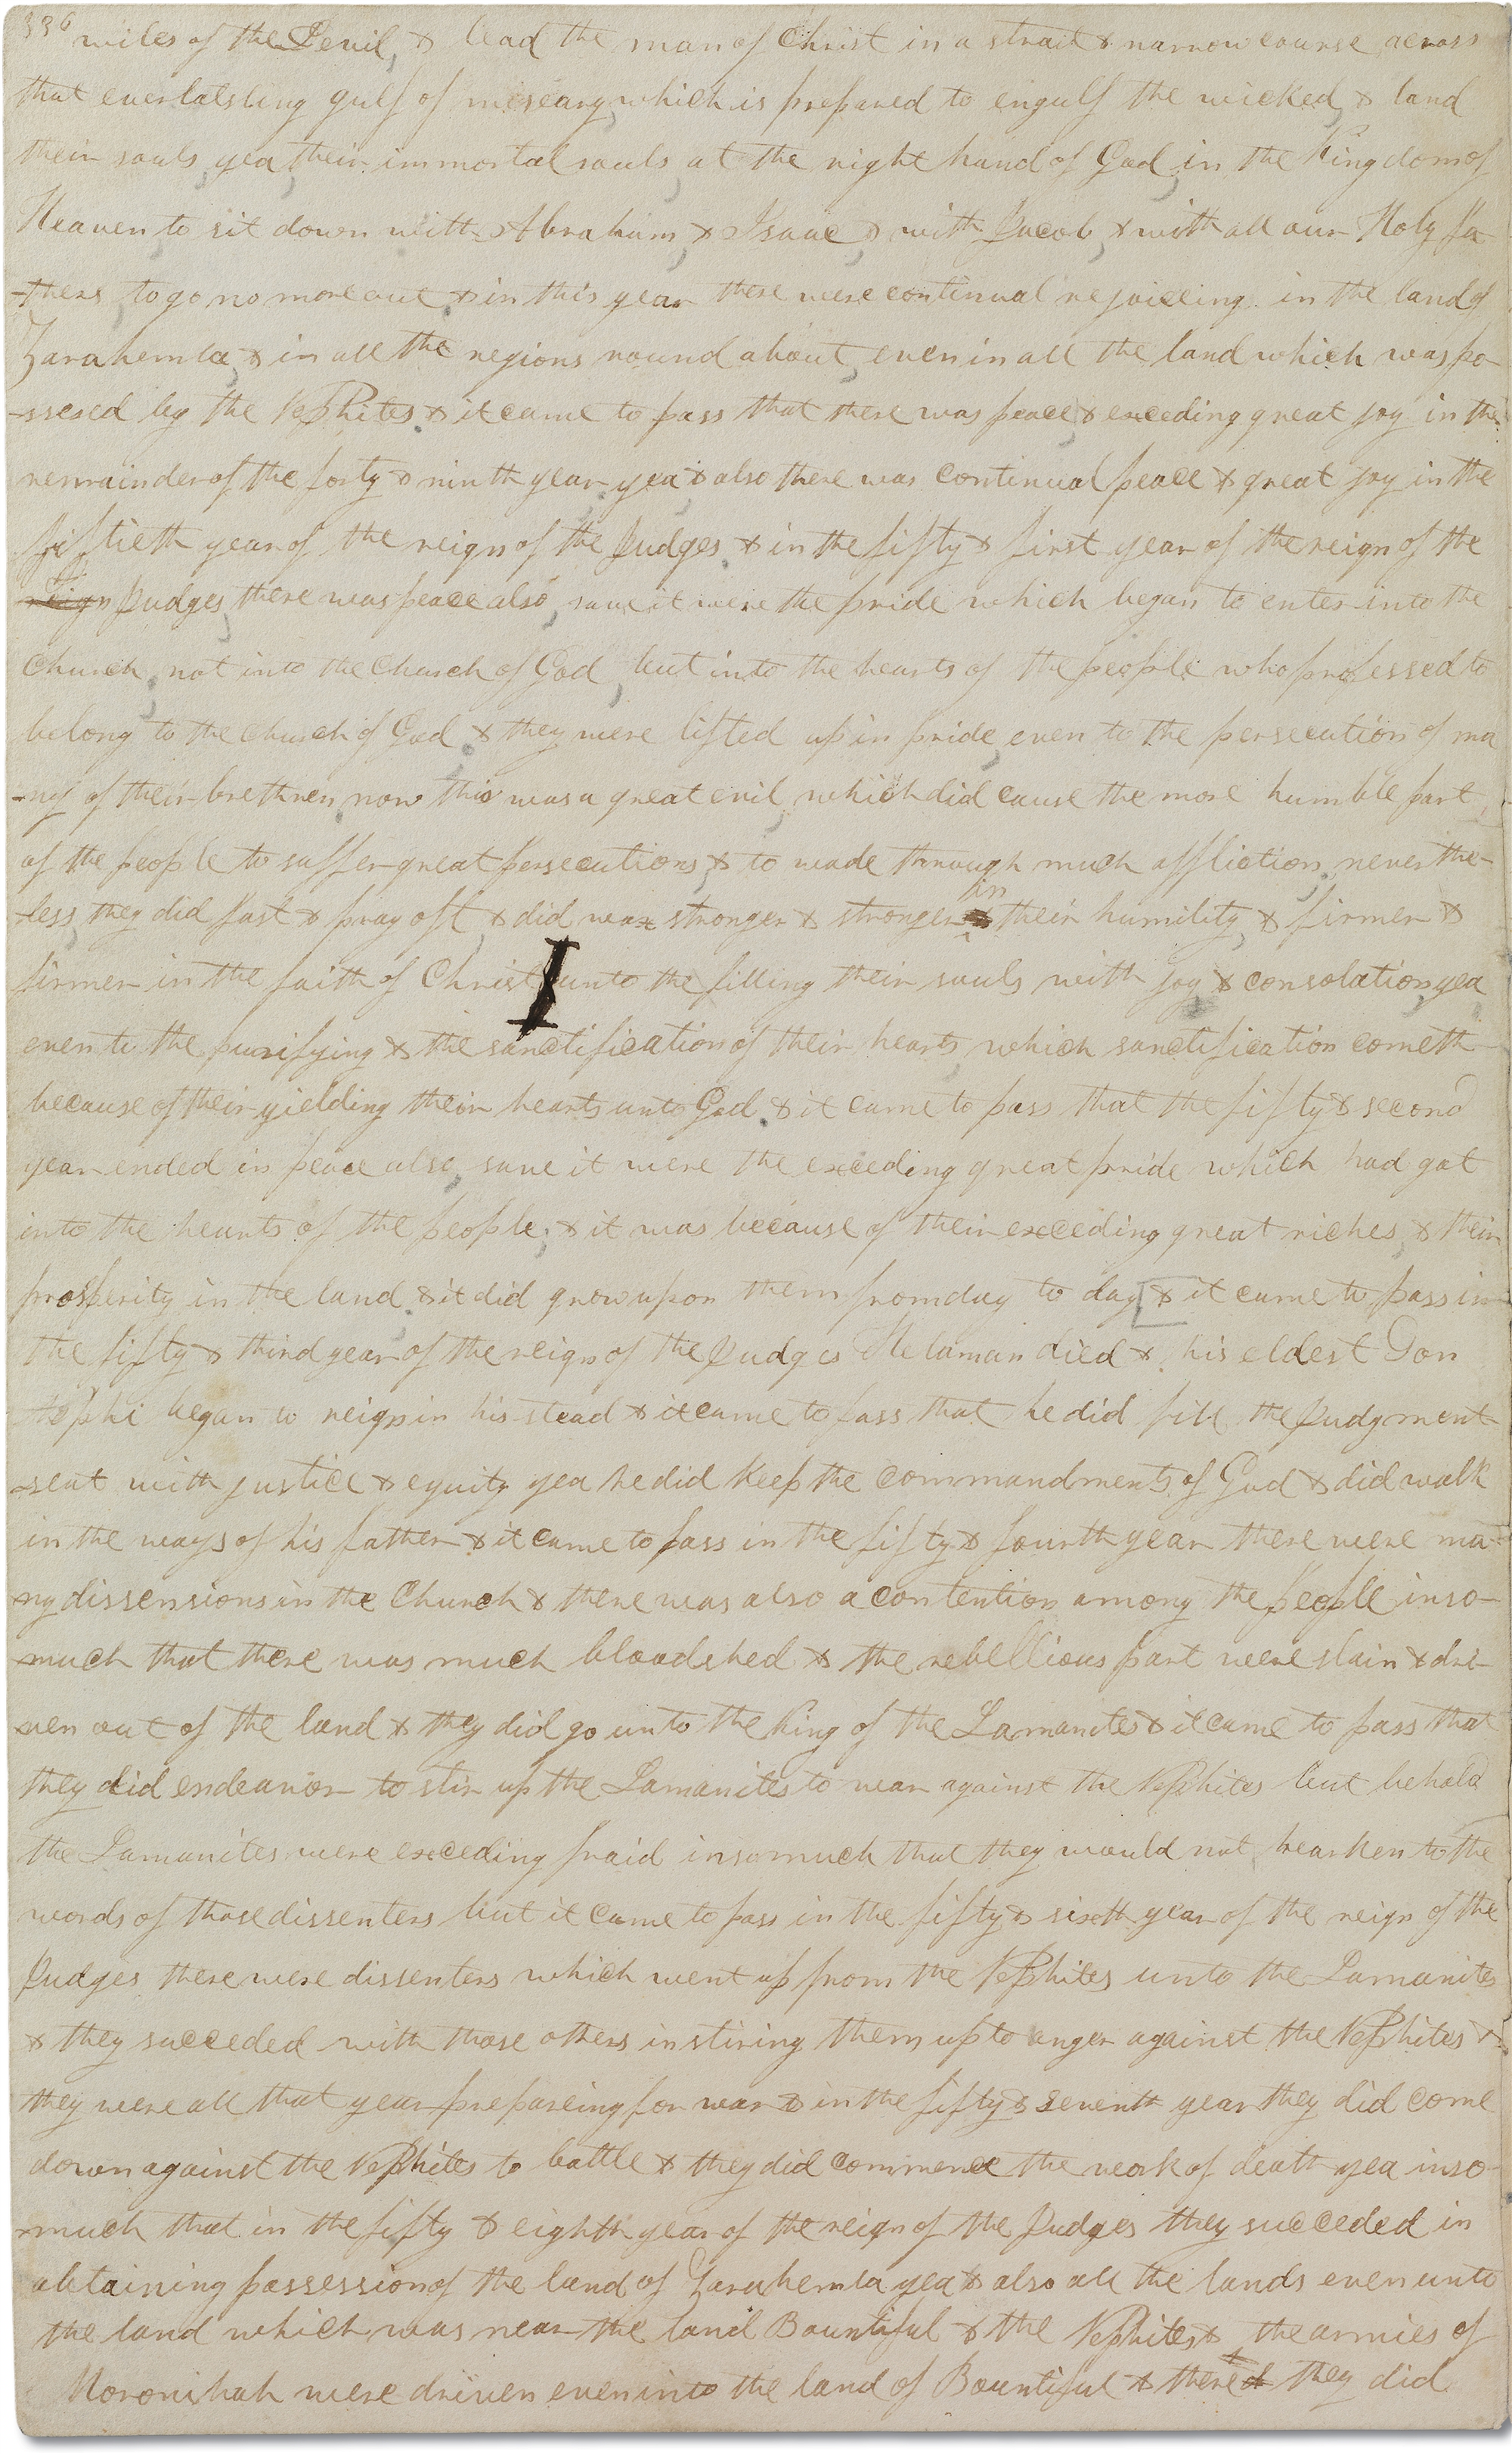 336 wiles of the Devil, & lead the man of Christ in a strait & narrow course across
that everlatsting gulf of miseary, which is prepared to engulf the wicked, & land
their souls, yea, their immortal souls, at the right hand of God, in the Kingdom of
Heaven to sit down with Abraham, & Isaac, & with Jacob, & with all our Holy fa
-thers to go no more out. & in this year there were continual rejoiceing in the land of
Zarahemla, & in all the regions round about, even in all the land which was po-
-ssesed by the Nephites. & it came to pass that there was peace, & exceding great joy in the
remainder of the forty & ninth year yea & also there was continual peace & great joy in the
fiftieth year of the reign of the Judges. & in the fifty & first year of the reign of the
reign Judges, there was peace also, save it were the pride which began to enter into the
Church, not into the Church of God, but into the hearts of the people who professed to
belong to the Church of God. & they were lifted up in pride, even to the persecution of ma
-ny of their brethren, now this was a great evil, which did cause the more humble part,
of the people to suffer great persecutions, & to wade through much affliction. never the-
-less, they did fast & pray oft, & did wax stronger & stronger in their humility, & firmer &
firmer in the faith of Christ, unto the filling their souls with joy & consolation, yea
even to the purifying & the sanctification of their hearts, which sanctification cometh
because of their yielding their hearts unto God. & it came to pass that the fifty & second
year ended in peace also, save it were the exceding great pride which had gat
into the hearts of the people; & it was because of their exceding great riches, & their
prosperity in the land. & it did grow upon them from day to day. [& it came to pass in
the fifty & third year of the reign of the Judges Helaman died & his eldest Son
Nephi began to reign in his stead & it came to pass that he did fill the Judgment
-seat with justice & equity yea he did keep the commandments of God & did walk
in the ways of his father & it came to pass in the fifty & fourth year there were ma-
-ny dissensions in the Church & there was also a contention among the people inso-
-much that there was much bloodshed & the rebellious part were slain & dri-
-ven out of the land & they did go unto the King of the Lamanites & it came to pass that
they did endeavor to stir up the Lamanites to war against the Nephites but behold
the Lamanites were exceding fraid insomuch that they would not hearken to the
words of those dissenters but it came to pass in the fifty & sixth year of the reign of the
Judges there were dissenters which went up from the Nephites unto the Lamanites
& they succeded with those others in stiring them up to anger against the Nephites &
they were all that year prepareing for war & in the fifty & seventh year they did come
down against the Nephites to battle & they did commence the work of death yea inso-
-much that in the fifty & eighth year of the reign of the Judges they succeded in
obtaining possession of the land of Zarahemla yea & also all the lands even unto
the land which was near the land Bountiful & the Nephites & the armies of
Moronihah were driven even into the land of Bountiful & there they did